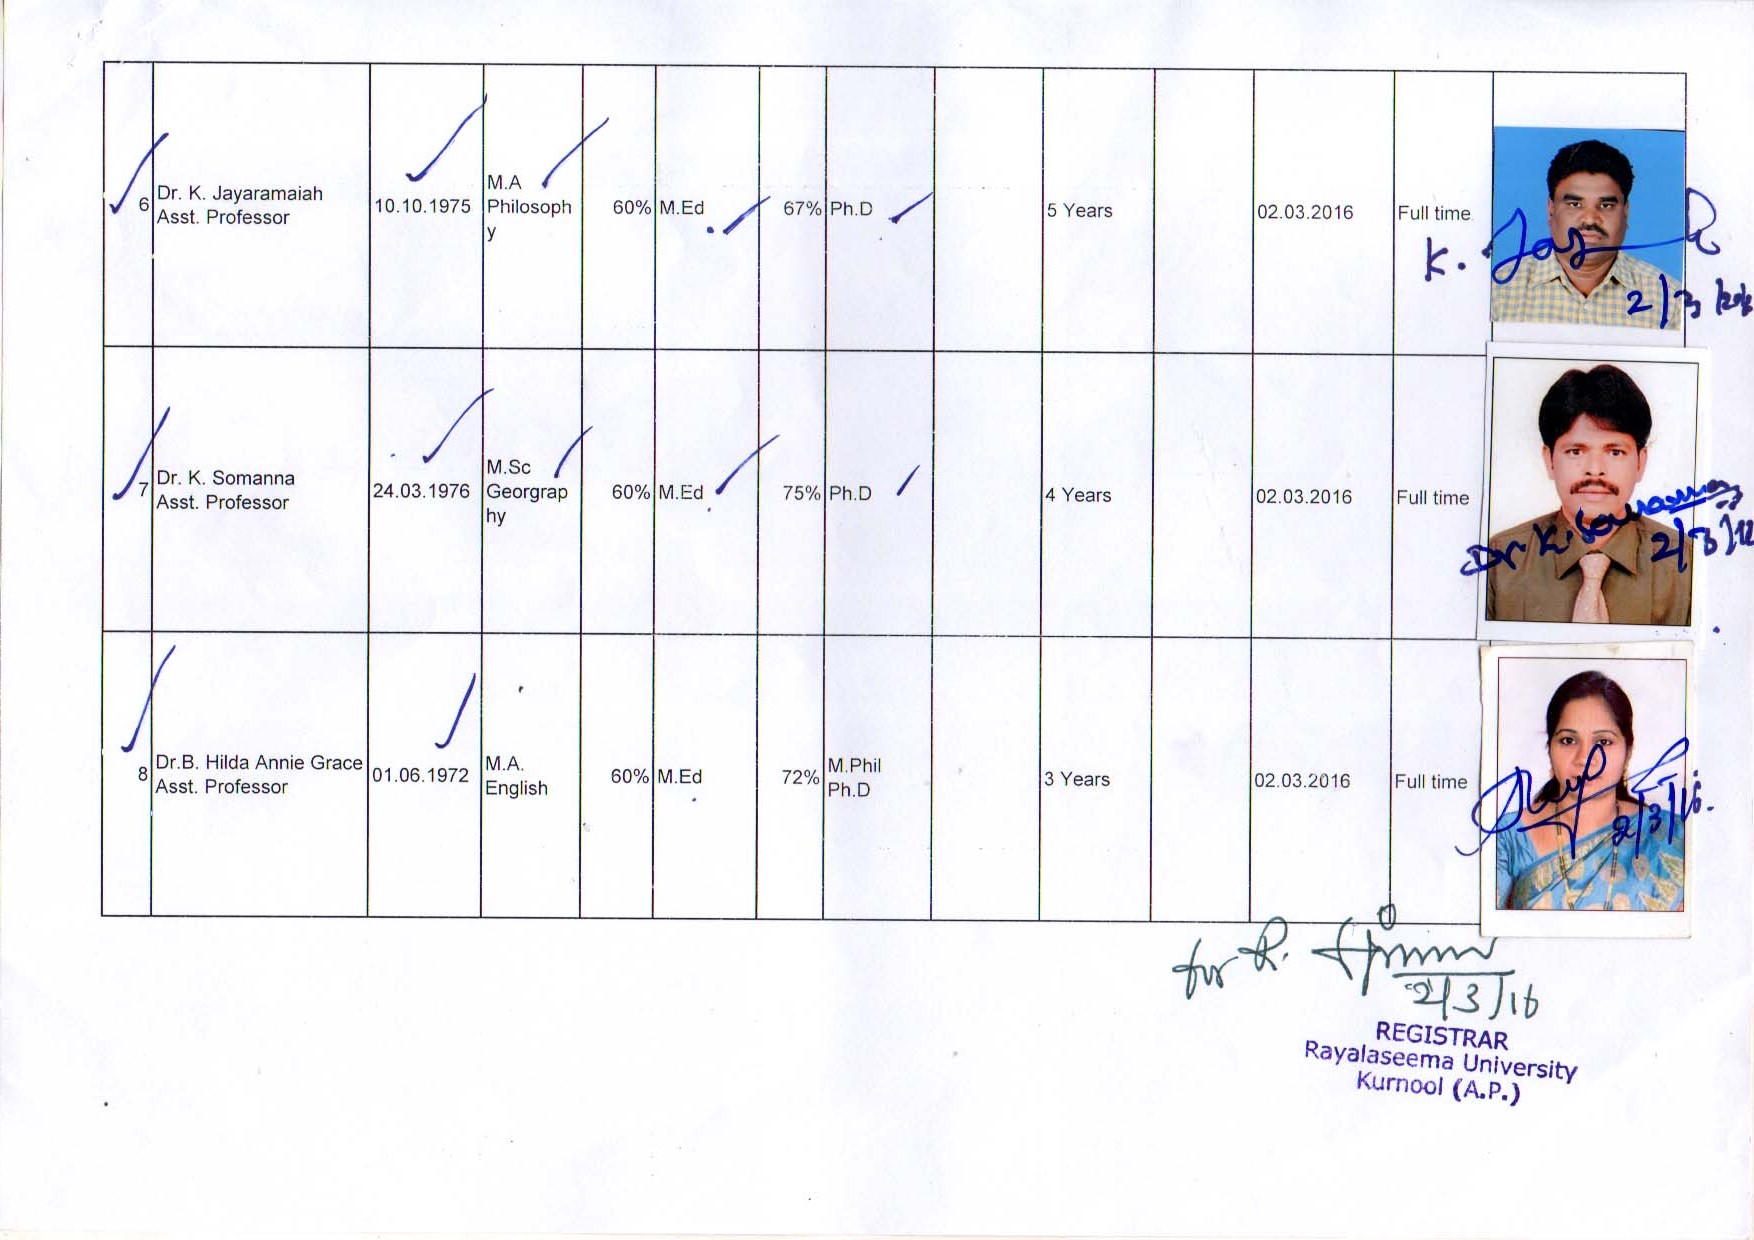 6 Dr. K. Jayaramaiah
Asst. Professor
10.10.1975
M.A
Philosoph
y
60% M.Ed
67% Ph.D
5 Years
02.03.2016
Full time
K. Jay
2/3/2016
7 Dr. K. Somanna
Asst. Professor
24.03.1976
M.Sc
Georgrap
hy
60% M.Ed
75% Ph.D
4 Years
02.03.2016
Full time
Dr K. Somanna
2/3/
8 Dr.B. Hilda Annie Grace
Asst. Professor
01.06.1972
M.A.
English
60% M.Ed
72%
M.Phil
Ph.D
3 Years
02.03.2016
Full time
2/3/16.
for R.
2/3/16
REGISTRAR
Rayalaseema University
Kurnool (A.P.)